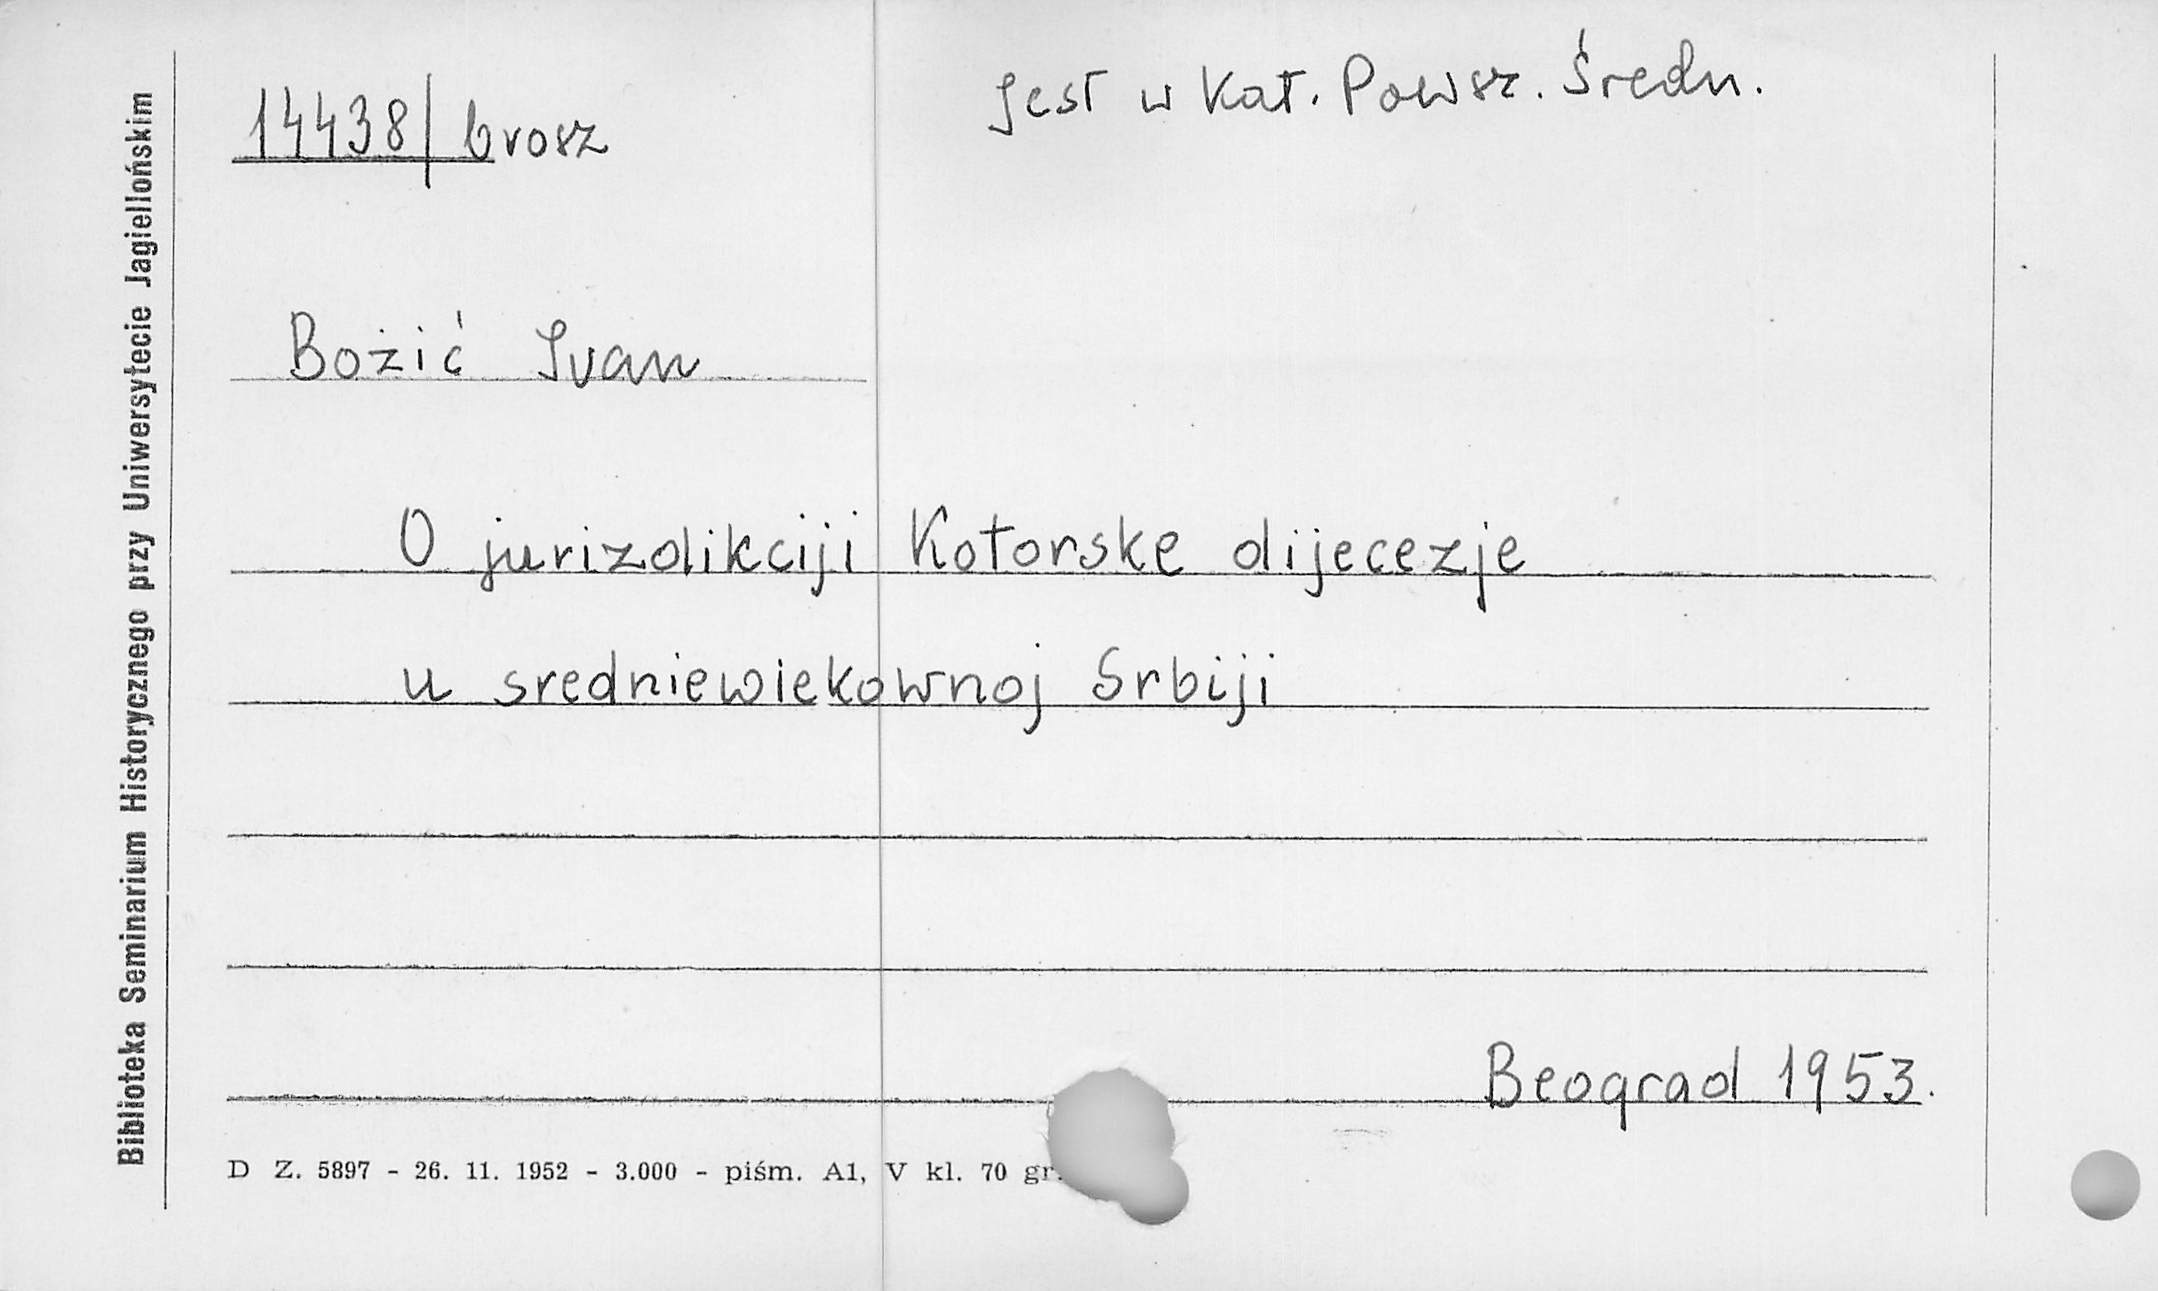 14438/brosz
Jest w Kat. Powsz. Średn.
Bożić Ivan
O jurizdikciji Kotorske dijecezje
u sredniewiekownoj Srbiji
Beograd 1953.
D Z. 5897 - 26. 11. 1952 - 3.000 - piśm. A1, V kl. 70 gr.
Biblioteka Seminarium Historycznego przy Uniwersytecie Jagiellońskim